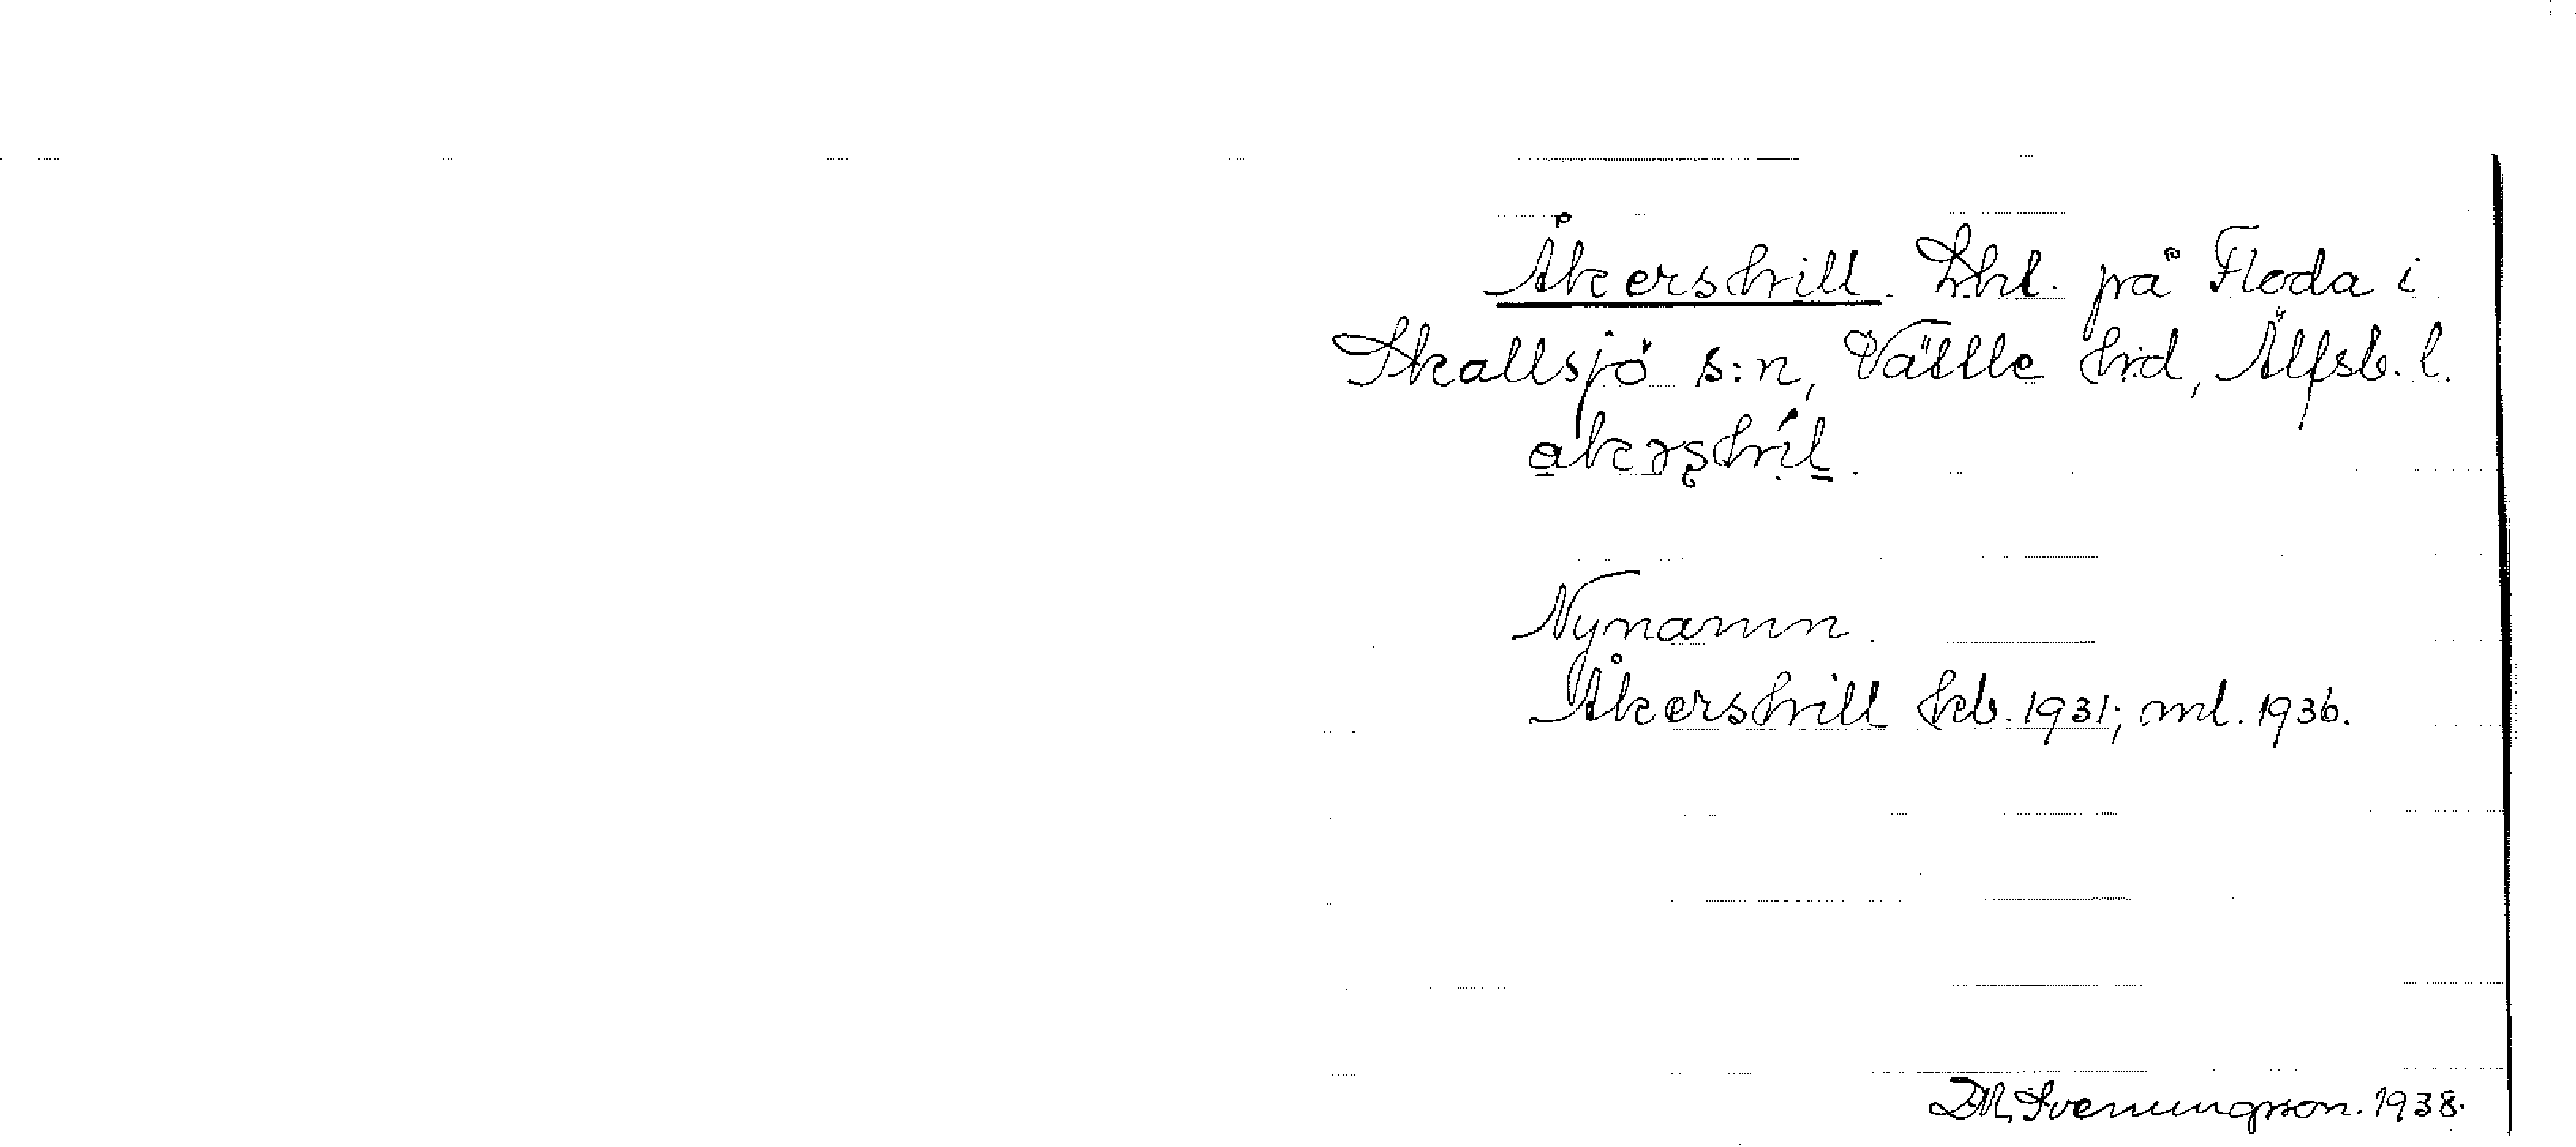 Åkershill. Lht. på Floda i
Skallsjö s:n, Vättle hrd, Älfsb. l.
åkershil.
Nynamn.
Åkershill kb. 1931; ml. 1936.
D.M. Svenningsson. 1938.